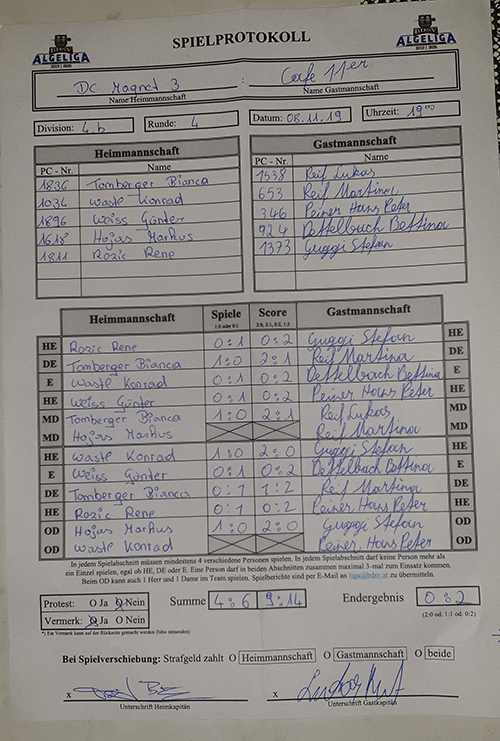 ALGELIGA
SPIELPROTOKOLL
ALGELIGA
DC Magnet 3 : Cafe 11er
Name Heimmannschaft Name Gastmannschaft
Division: 4.b Runde: 4 Datum: 08.11.19 Uhrzeit: 19⁰⁰
Heimmannschaft Gastmannschaft
PC - Nr. Name PC - Nr. Name
1836 Tomberger Bianca 1338 Reif Lukas
1034 Waste Konrad 653 Reif Martina
1896 Weiss Günter 346 Peiner Hans Peter
1618 Hojas Markus 924 Dettelbach Bettina
1811 Rozic Rene 1373 Guggi Stefan
Heimmannschaft Spiele Score Gastmannschaft
1:0 oder 0:1 2:0, 2:1, 0:2, 1:2
HE Rozic Rene 0:1 0:2 Guggi Stefan HE
DE Tomberger Bianca 1:0 2:1 Reif Martina DE
E Waste Konrad 0:1 0:2 Dettelbach Bettina E
HE Weiss Günter 0:1 0:2 Peiner Hans Peter HE
MD Tomberger Bianca 1:0 2:1 Reif Lukas MD
MD Hojas Markus Reif Martina MD
HE Waste Konrad 1:0 2:0 Guggi Stefan HE
E Weiss Günter 0:1 0:2 Dettelbach Bettina E
DE Tomberger Bianca 0:1 1:2 Reif Martina DE
HE Rozic Rene 0:1 0:2 Peiner Hans Peter HE
OD Hojas Markus 1:0 2:0 Guggi Stefan OD
OD Waste Konrad Peiner Hans Peter OD
In jedem Spielabschnitt müssen mindestens 4 verschiedene Personen spielen. In jedem Spielabschnitt darf keine Person mehr als
ein Einzel spielen, egal ob HE, DE oder E. Eine Person darf in beiden Abschnitten zusammen maximal 3-mal zum Einsatz kommen.
Beim OD kann auch 1 Herr und 1 Dame im Team spielen. Spielberichte sind per E-Mail an liga@bdsv.at zu übermitteln.
Protest: O Ja O Nein Summe 4:6 9:14 Endergebnis 0:2
Vermerk: O Ja O Nein (2:0 od. 1:1 od. 0:2)
*) Ein Vermerk kann auf der Rückseite gemacht werden (bitte mitsenden)
Bei Spielverschiebung: Strafgeld zahlt O Heimmannschaft O Gastmannschaft O beide
x x
Unterschrift Heimkapitän Unterschrift Gastkapitän